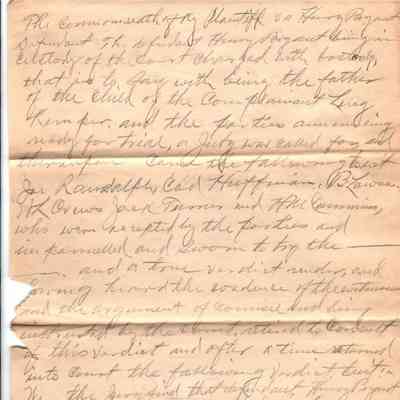 The Commonwealth of Ky Plaintiff vs Henry Bryant
Defendant The defendant Henry Bryant being in
Custody of the Court Charged with bastardy,
that is to Say with being the father
of the Child of the Complainant Lucy
Kemper. and the parties announcing
ready for trial, a Jury was called for and
thereupon Came the following
Joe Randolph, Cad Huffman, B Lawson
W L Crews Jack Turner and
who were accepted by the parties and
impannelled and Sworn to try the
and a true verdict render, and
having heard the evidence of the witnesses
and the argument of Council and being
instructed by the Court, retired to Consult
of this verdict and after a time returned
into Court the following verdict
We the Jury find that defendant, Henry Bryant